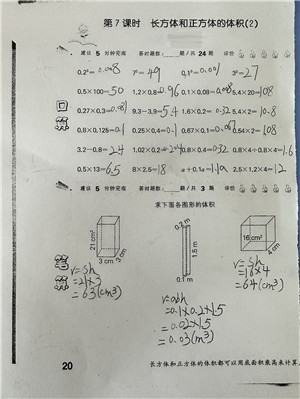 第7课时 长方体和正方体的体积(2)
建议 5 分钟完成 答对题数: /共 24 题 评价
0.2³=0.008 7²=49 0.1³=0.001 3³=27
0.5×100=50 1.2×0.8=0.96 0.1×0.08=0.008 5.4×20=108
0.27×0.3=0.081 9.3-3.9=5.4 1.6×0.2=0.32 5.4×2=10.8
0.8×0.125=0.1 0.25×0.4=0.1 0.67×0.1=0.067 0.54×2=1.08
3.2-0.8=2.4 1.02×0.2=0.204 0.8×0.4=0.32 0.8×4÷0.8×4=1.6
0.5×13=6.5 8×2.5=18 a+0.1a=1.1a 2.5×1.2×4=12
建议 5 分钟完成 答对题数: /共 3 题 评价
求下面各图形的体积
21 cm² 3 cm 3 cm
0.2 m 1.5 m 0.1 m
16 cm² 4 cm
口算
笔算
V=Sh
=21×3
=63(cm³)
V=abh
=0.1×0.2×1.5
=0.02×1.5
=0.03(m³)
V=Sh
=16×4
=64(cm³)
20
长方体和正方体的体积都可以用底面积乘高来计算。